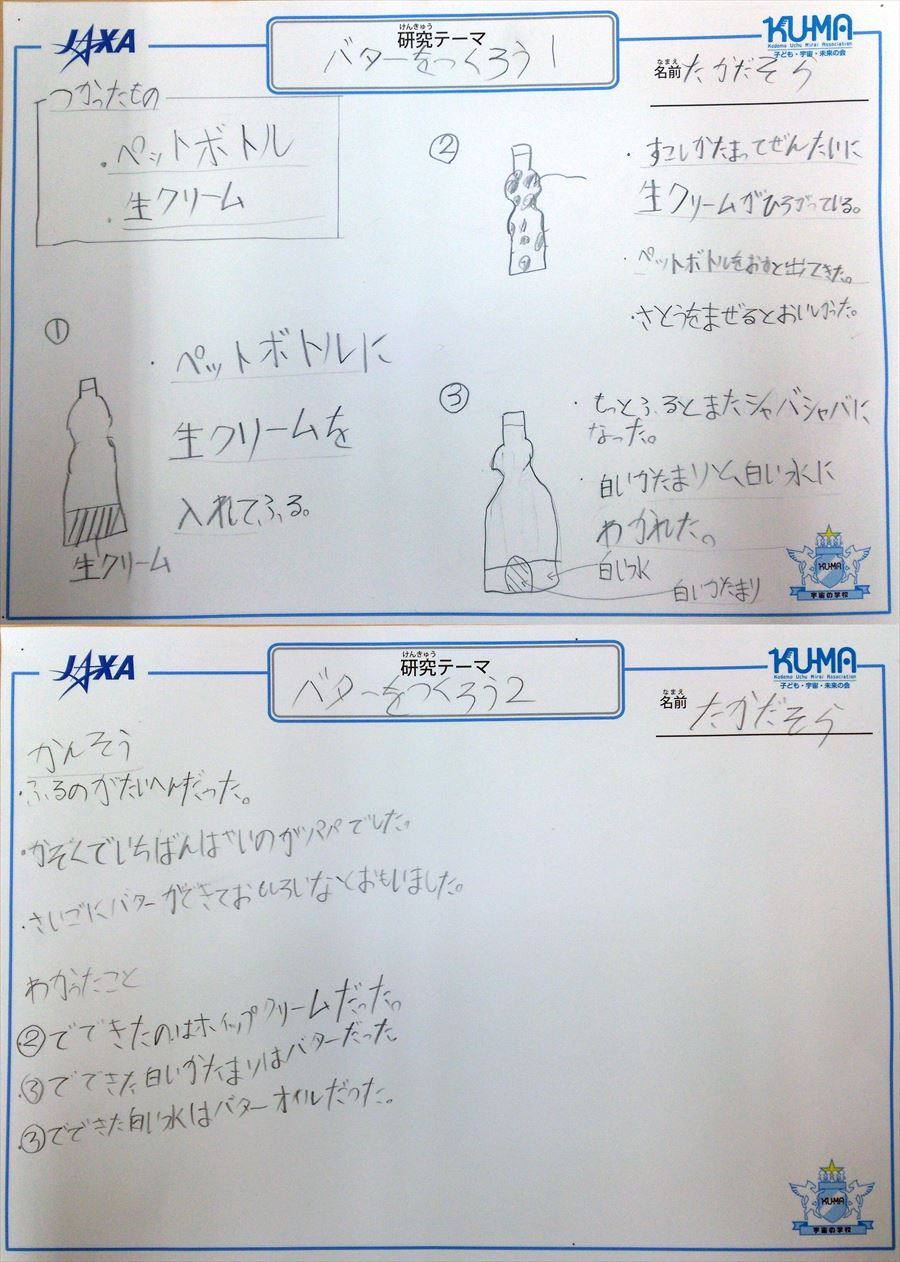 JAXA
けんきゅう
研究テーマ
バターをつくろう1
KUMA
Kodomo Uchu Mirai Association
子ども・宇宙・未来の会
なまえ
名前 たかだそら
つかったもの
・ペットボトル
・生クリーム
①
・ペットボトルに
生クリームを
入れてふる。
生クリーム
②
・すこしかたまってぜんたいに
生クリームがひろがっている。
・ペットボトルをおすと出てきた。
・さとうをまぜるとおいしかった。
③
・もっとふるとまたシャバシャバに
なった。
・白いかたまりと、白い水に
わかれた。
白い水
白いかたまり
KUMA
宇宙の学校
JAXA
けんきゅう
研究テーマ
バターをつくろう2
KUMA
Kodomo Uchu Mirai Association
子ども・宇宙・未来の会
なまえ
名前 たかだそら
かんそう
・ふるのがたいへんだった。
・かぞくでいちばんはやいのがパパでした。
・さいごにバターができておもしろいなとおもいました。
わかったこと
・②でできたのはホイップクリームだった。
・③でできた白いかたまりはバターだった。
・③でできた白い水はバターオイルだった。
KUMA
宇宙の学校